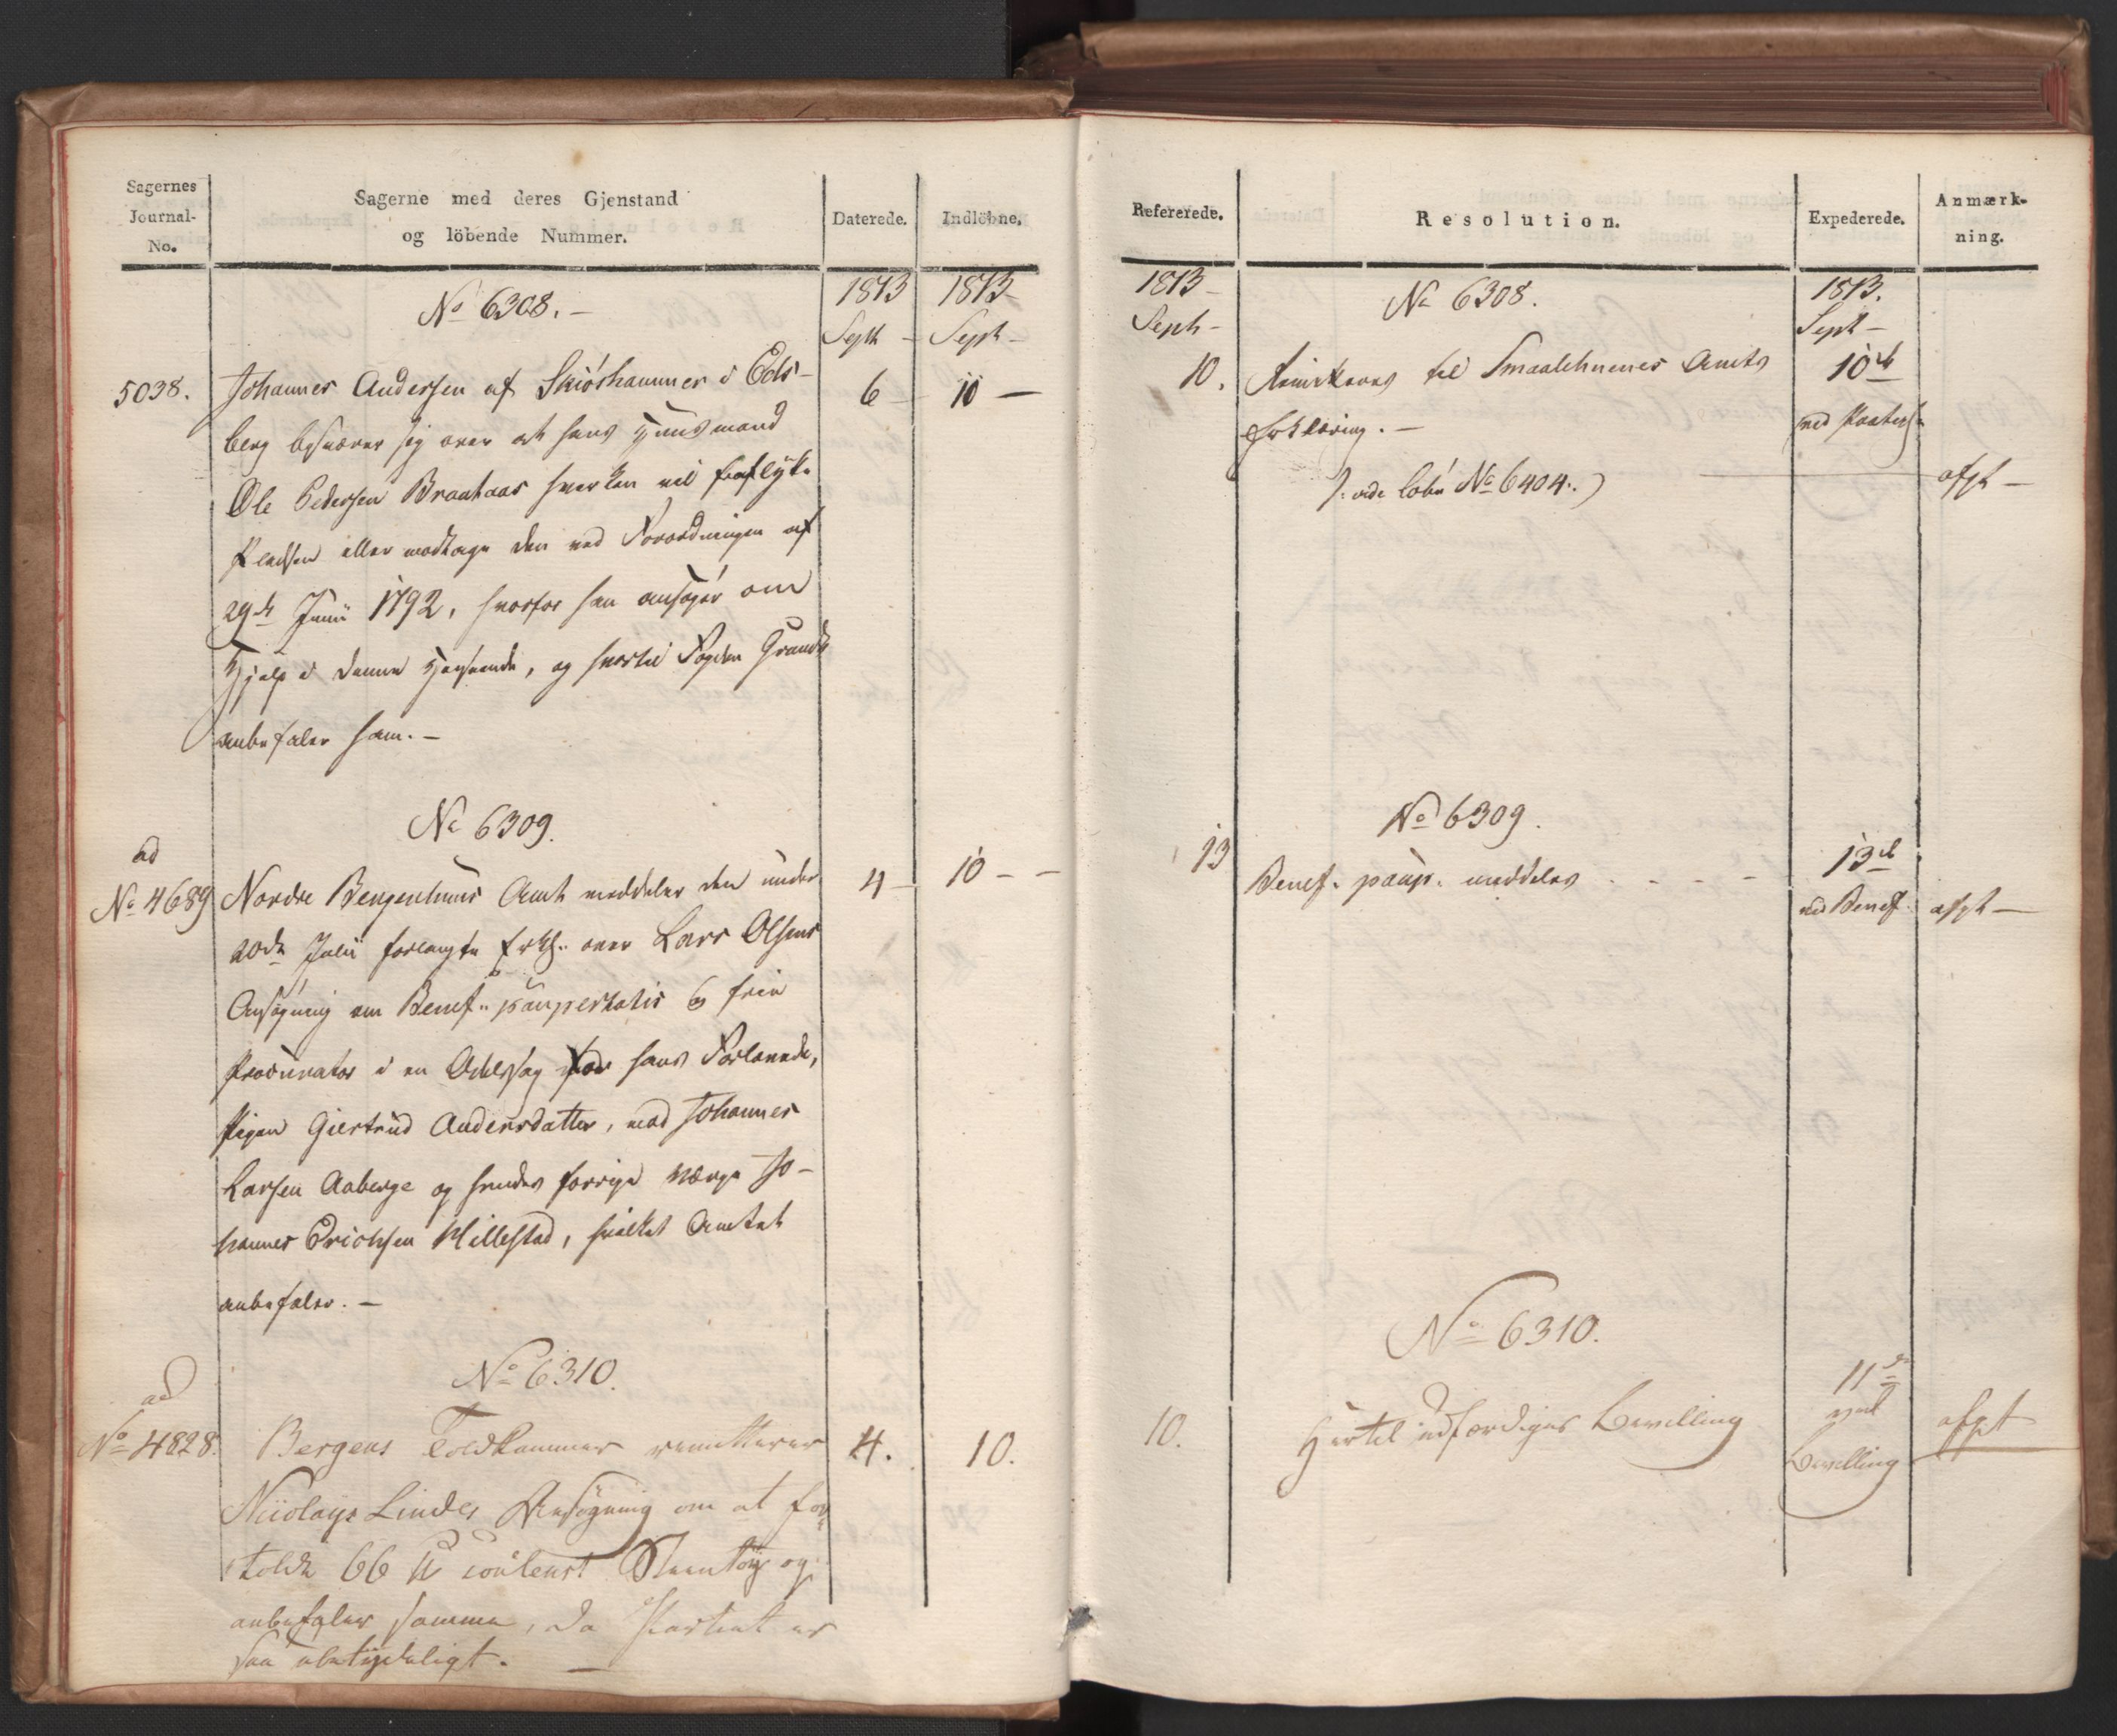 Sagernes
Journal-
No.
Sagerne med deres Gjenstand
og löbende Nummer.
Daterede.
Indlöbne.
1813
Septb
1813
Septb
No 6308. –
5038.
Johannes Andersen af Skiøshammer i Eds-
berg besværer sig over at hans Huusmand
Ole Pedersen Braataas hverken vil fraflytte
Pladsen eller modtage den ved Forordningen af
29de Junii 1792, hvorfor han ansøger om
Hjelp i denne Henseende, og hvortil Fogden
anbefaler ham. –
6
10 –
No 6309.
ad
No 4689
Nordre Bergenhuus Amt meddeler den under
20de Julii forlangte Erkl. over Lars Olsens
Ansøgning om Benef. paupertatis og frie
Procurator i en Odelssag for hans Forlovede,
Pigen Giertrud Andersdatter, mod Johannes
Larsen Aaberge og hendes forrige Værge Jo-
hannes Erichsen Hillestad, hvilket Amtet
anbefaler. –
4 –
10 – –
No 6310.
ad
No 4828.
Bergens Toldkammer remitterer
Nicolays Lindes Ansøgning om at for-
tolde 66 ℔ couleurt Steentøy og
anbefaler samme, da Partiet er
saa ubetydeligt. –
4.
10.
Refererede.
Resolution.
Expederede.
Anmærk-
ning.
1813
Septb
1813.
Septb
No 6308.
10.
til Smaalehnenes Amts
Erklæring. –
10de
ved
(: vide Løbe No 6404 :)
afgt –
No 6309.
13
Benef. paup. meddeles - - - -
13de
ved Benef.
afgt –
No 6310.
10.
Hertil udfærdiges Bevilling
11te
ved
Bevilling
afgt